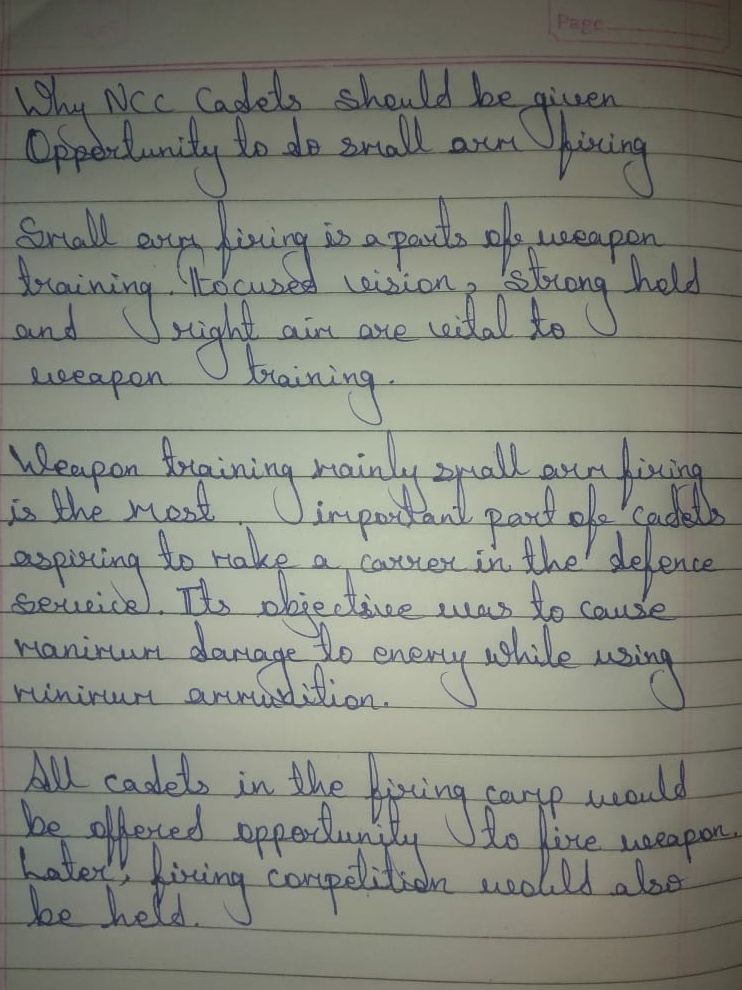 Page
Why NCC Cadets should be given
Opportunity to do small arm firing
Small arm firing is a parts of weapon
training. Focused vision, strong hold
and right aim are vital to
weapon training.
Weapon training mainly small arm firing
is the most important part of cadets
aspiring to make a carrer in the defence
service. Its objective was to cause
manimum damage to enemy while using
minimum ammudition.
All cadets in the firing camp would
be offered opportunity to fire weapon.
Later, firing competition would also
be held.